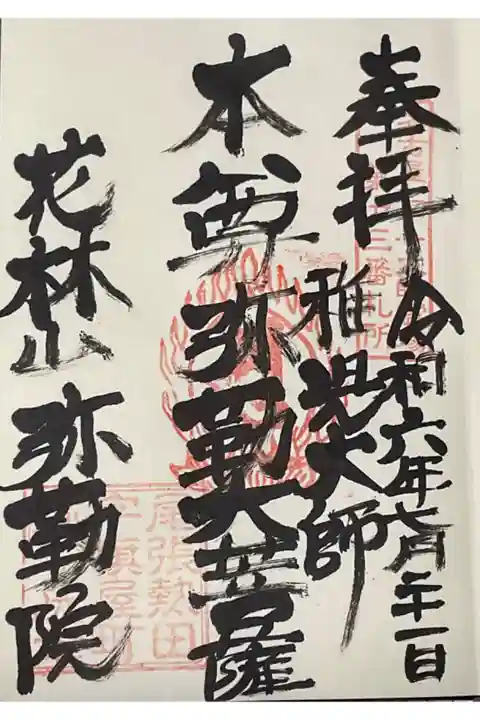 奉拝
令和六年七月二十一日
雅児大師
本尊弥勒大菩薩
花林山弥勒院
三番札所
尾張熱田